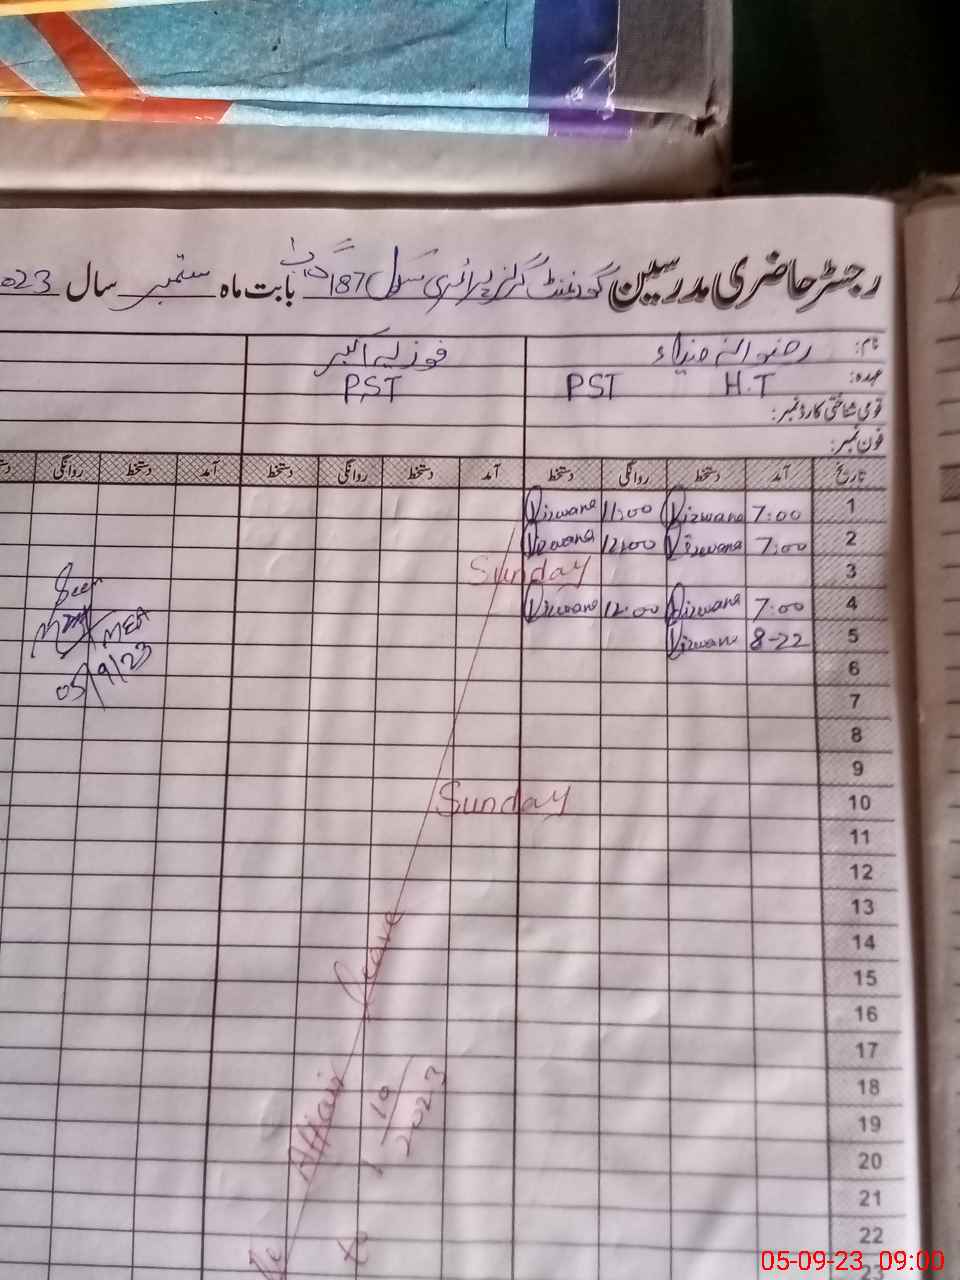 رجسٹر حاضری مدرسین گورنمنٹ گرلز پرائمری سکول 187 بابت ماہ ستمبر سال 023
نام: رضوانہ فوزیہ اکبر
عہدہ: H.T PST PST
قومی شناختی کارڈ نمبر:
فون نمبر:
تاریخ آمد دستخط روانگی دستخط آمد دستخط روانگی دستخط آمد دستخط روانگی
1 7:00 Rizwana 11:00 Rizwana
2 7:00 Rizwana 12:00 Rizwana
3 Sunday
4 7:00 Rizwana 12:00 Rizwana
5 8-22 Rizwana
Seen
MEA
05/9/23
6
7
8
9
10 Sunday
11
12
13
14
15
16
17
18
19
20
21
22
23
Affair Leave
to 1/10/2023
05-09-23 09:00